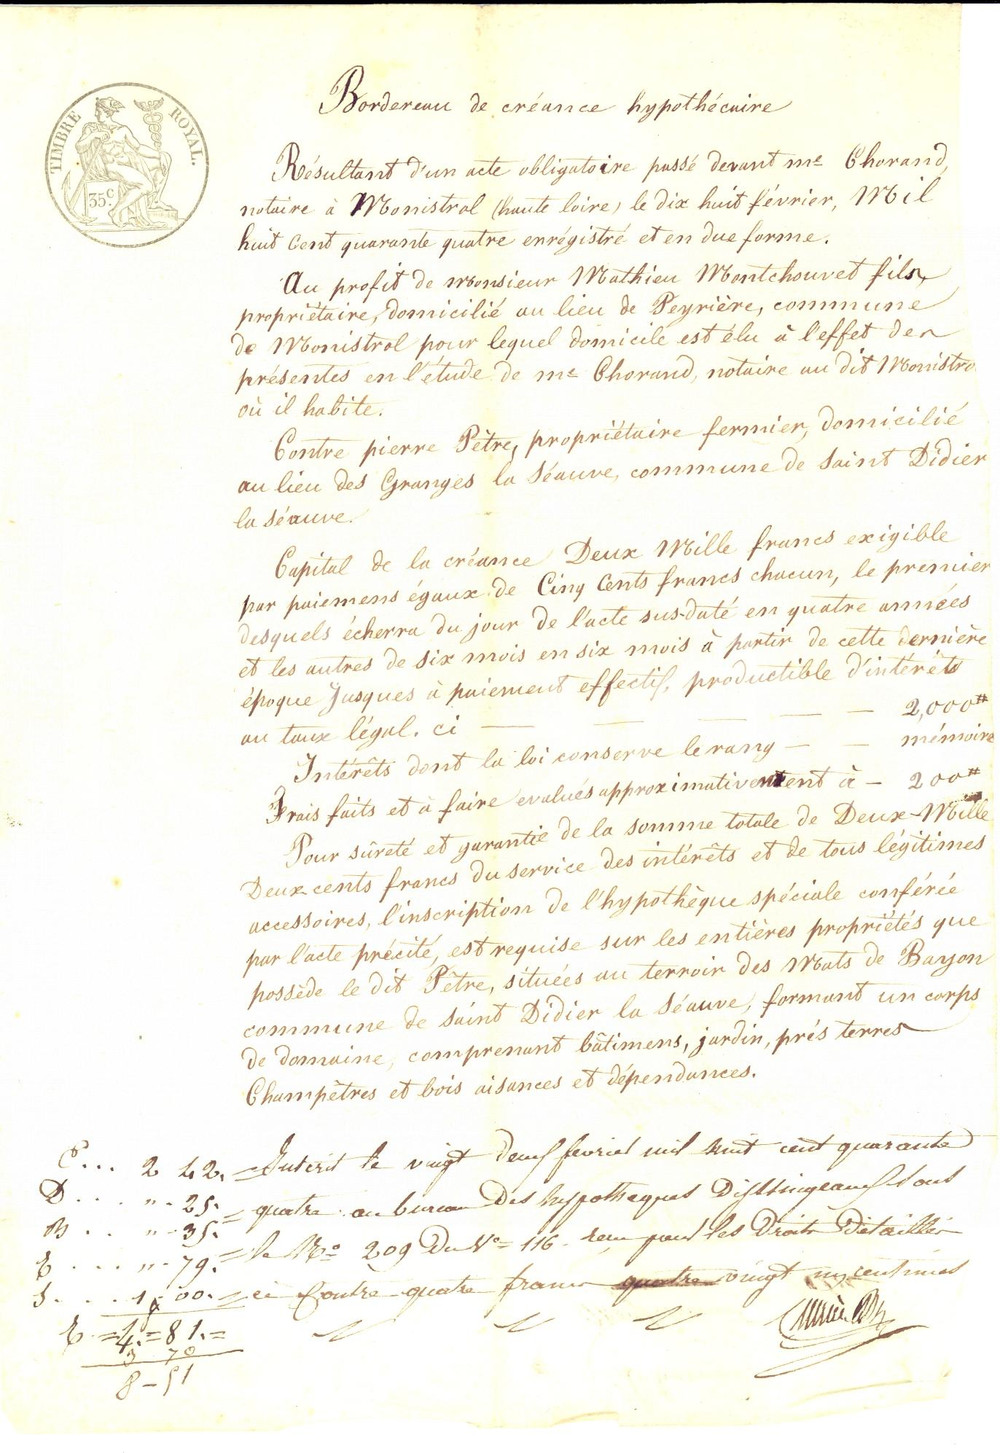 TIMBRE ROYAL.
35 c.
Bordereau de créance hypothécaire
Résultant d'un acte obligatoire passé devant me Chorand,
notaire à Monistrol (haute loire) le dix huit février, Mil
huit Cent quarante quatre enrégistré et en due forme.
Au profit de monsieur Mathieu Montchouvet fils,
propriétaire, domicilié au lieu de Peyrière, commune
de Monistrol pour lequel domicile est élu à l'effet des
présentes en l'étude de me Chorand, notaire au dit Monistro
où il habite.
Contre pierre Pêtre, propriétaire fermier, domicilié
au lieu des Granges la Séauve, commune de Saint Didier
la séauve.
Capital de la créance Deux Mille francs exigible
par paiemens égaux de Cinq Cents francs chacun, le premier
desquels écherra du jour de l'acte sus-daté en quatre années
et les autres de six mois en six mois à partir de cette dernière
époque Jusques à paiement effectif, productible d'intérêts
au taux légal. ci — — — — 2,000#
Intérêts dont la loi conserve le rang — — mémoire
Frais faits et à faire évalués approximativement à — 200#
Pour sûreté et garantie de la somme totale de Deux-Mille
Deux cents francs du service des intérêts et de tous légitimes
accessoires, l'inscription de l'hypothèque spéciale conférée
par l'acte précité, est requise sur les entières propriétés que
possède le dit Pêtre, situées au terroir des Mats de Bayon
commune de Saint Didier la Séauve, formant un corps
de domaine, comprenant bâtimens, jardin, prés terres
Champêtres et bois aisances et dépendances.
Inscrit le vingt deux février mil huit cent quarante
quatre au bureau des hypotheques D'Issingeaux sous
le No 209 Du Ve 116 recu pour les Droits détaillés
ci contre quatre francs quatre vingt un centimes
2 42.
D . . . " 25.
" 35.
" 79.
1 00.
4. = 81. =
3 70
8 — 51